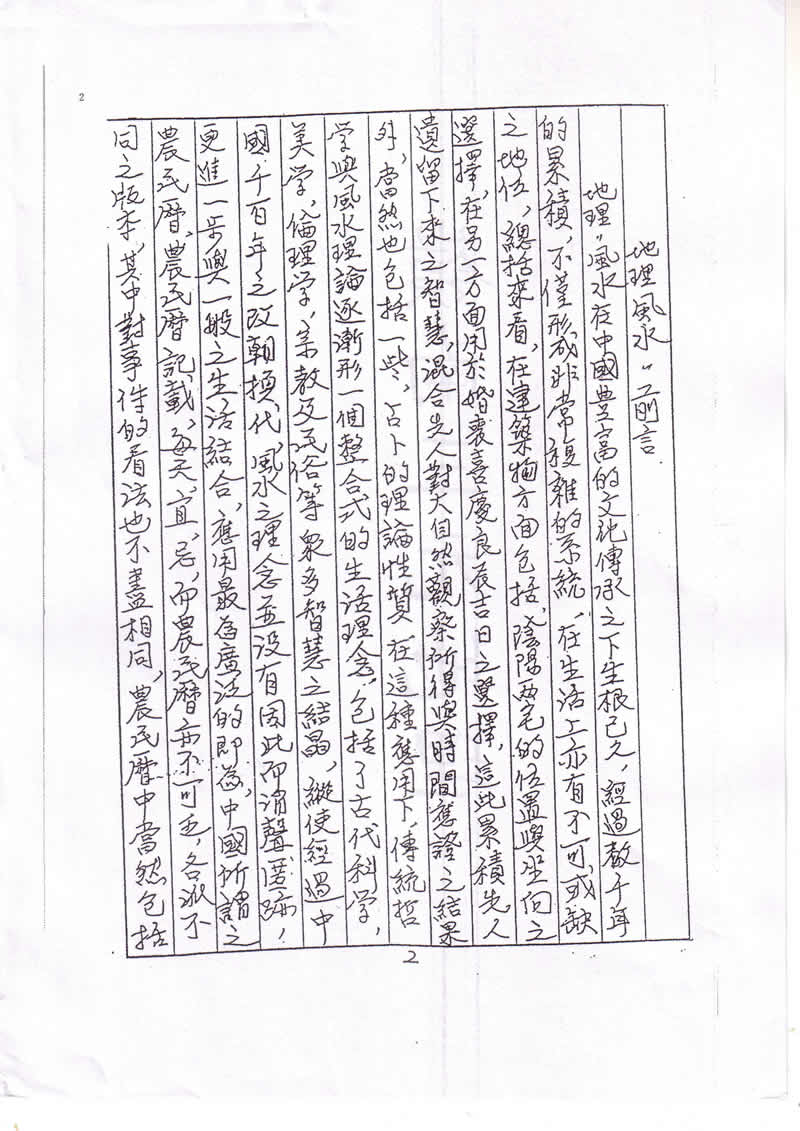 2
地理風水"前言
地理"風水在中國豐富的文化傳承之下生根已久，經過數千年
的累積，不僅形成非常複雜的系統，在生活上亦有不可或缺
之地位，總括來看，在建築物方面包括，陰陽兩宅的位置與坐向之
選擇，在另一方面用於婚喪喜慶良辰吉日之選擇，這些累積先人
遺留下來之智慧，混合先人對大自然觀察所得與時間應證之結果
外，當然也包括一些，占卜的理論性質，在這種應用下，傳統哲
學與風水理論逐漸形一個整合式的生活理念，包括了古代科学，
美学，倫理学，宗教及民俗等眾多智慧之結晶，縱使經過中
國千百年之改朝換代，風水之理念並沒有因此而消聲匿跡，
更進一步與一般之生活結合，應用最為廣泛的即為，中國所謂之
農民曆，農民曆記載，每天，宜，忌，而農民曆亦不可乏，各派不
同之版本，其中對事件的看法也不盡相同，農民曆中當然包括
2